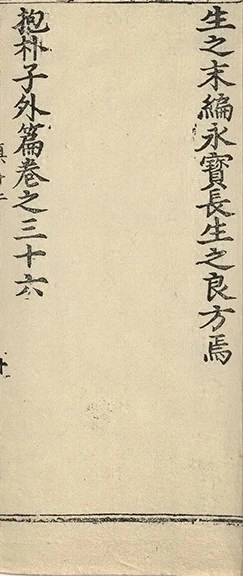 生之末編永寳長生之良方焉
抱朴子外篇卷之三十六